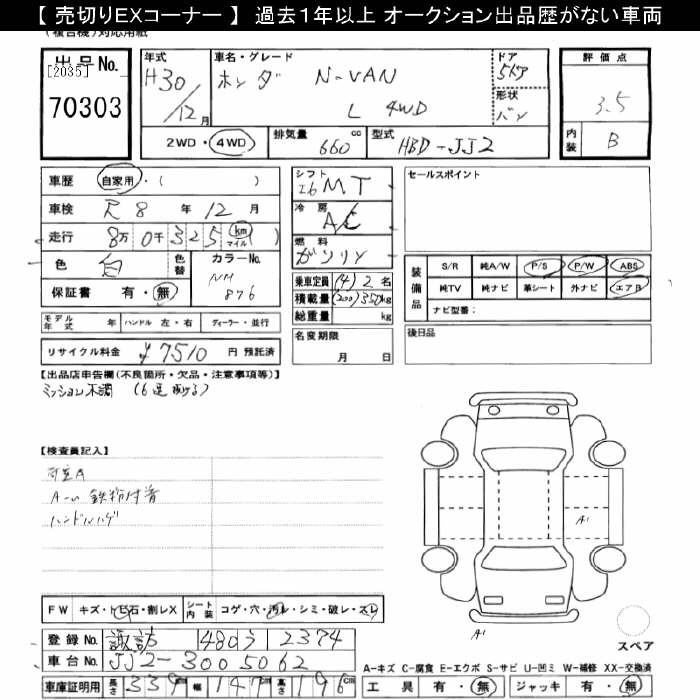 【 売切りEXコーナー 】 過去1年以上 オークション出品歴がない車両
(複合機)対応用紙
出品No. [2035] 70303
年式 H30/12月
車名・グレード ホンダ N-VAN L 4WD
ドア 5ドア
形状 バン
評価点 3.5
内装 B
2WD・4WD
排気量 660 cc
型式 HBD-JJ2
車歴 自家用・( )
車検 R8年12月
走行 8万0千325 km マイル ( )
色 白 色替 カラーNo. NH 876
保証書 有・無
モデル年式 年 ハンドル 左・右 ディーラー・並行
リサイクル料金 ¥7510 円 預託済
シフト I6 MT
冷房 A/C
燃料 ガソリン
乗車定員 (4) 2 名
積載量 (200) 350 kg
総重量 kg
名変期限 月 日
セールスポイント
装備品 S/R 純A/W P/S P/W ABS
純TV 純ナビ 革シート 外ナビ エアB
ナビ型番:
後日品
【出品店申告欄(不良箇所・欠品・注意事項等)】
ミッション不調 (6速 抜ける)
【検査員記入】
A-u 鉄粉付着
ハンドルハゲ
A1
A1
FW キズ・トビ石・割レX シート内装 コゲ・穴・汚レ・シミ・破レ・スレ
登録No. 諏訪 480 う 2374
車台No. JJ2-3005062
車庫証明用 長さ 339 cm 幅 147 cm 高さ 196 cm
スペア
A-キズ C-腐食 E-エクボ S-サビ U-凹ミ W-補修 XX-交換済
工具 有・無 ジャッキ 有・無